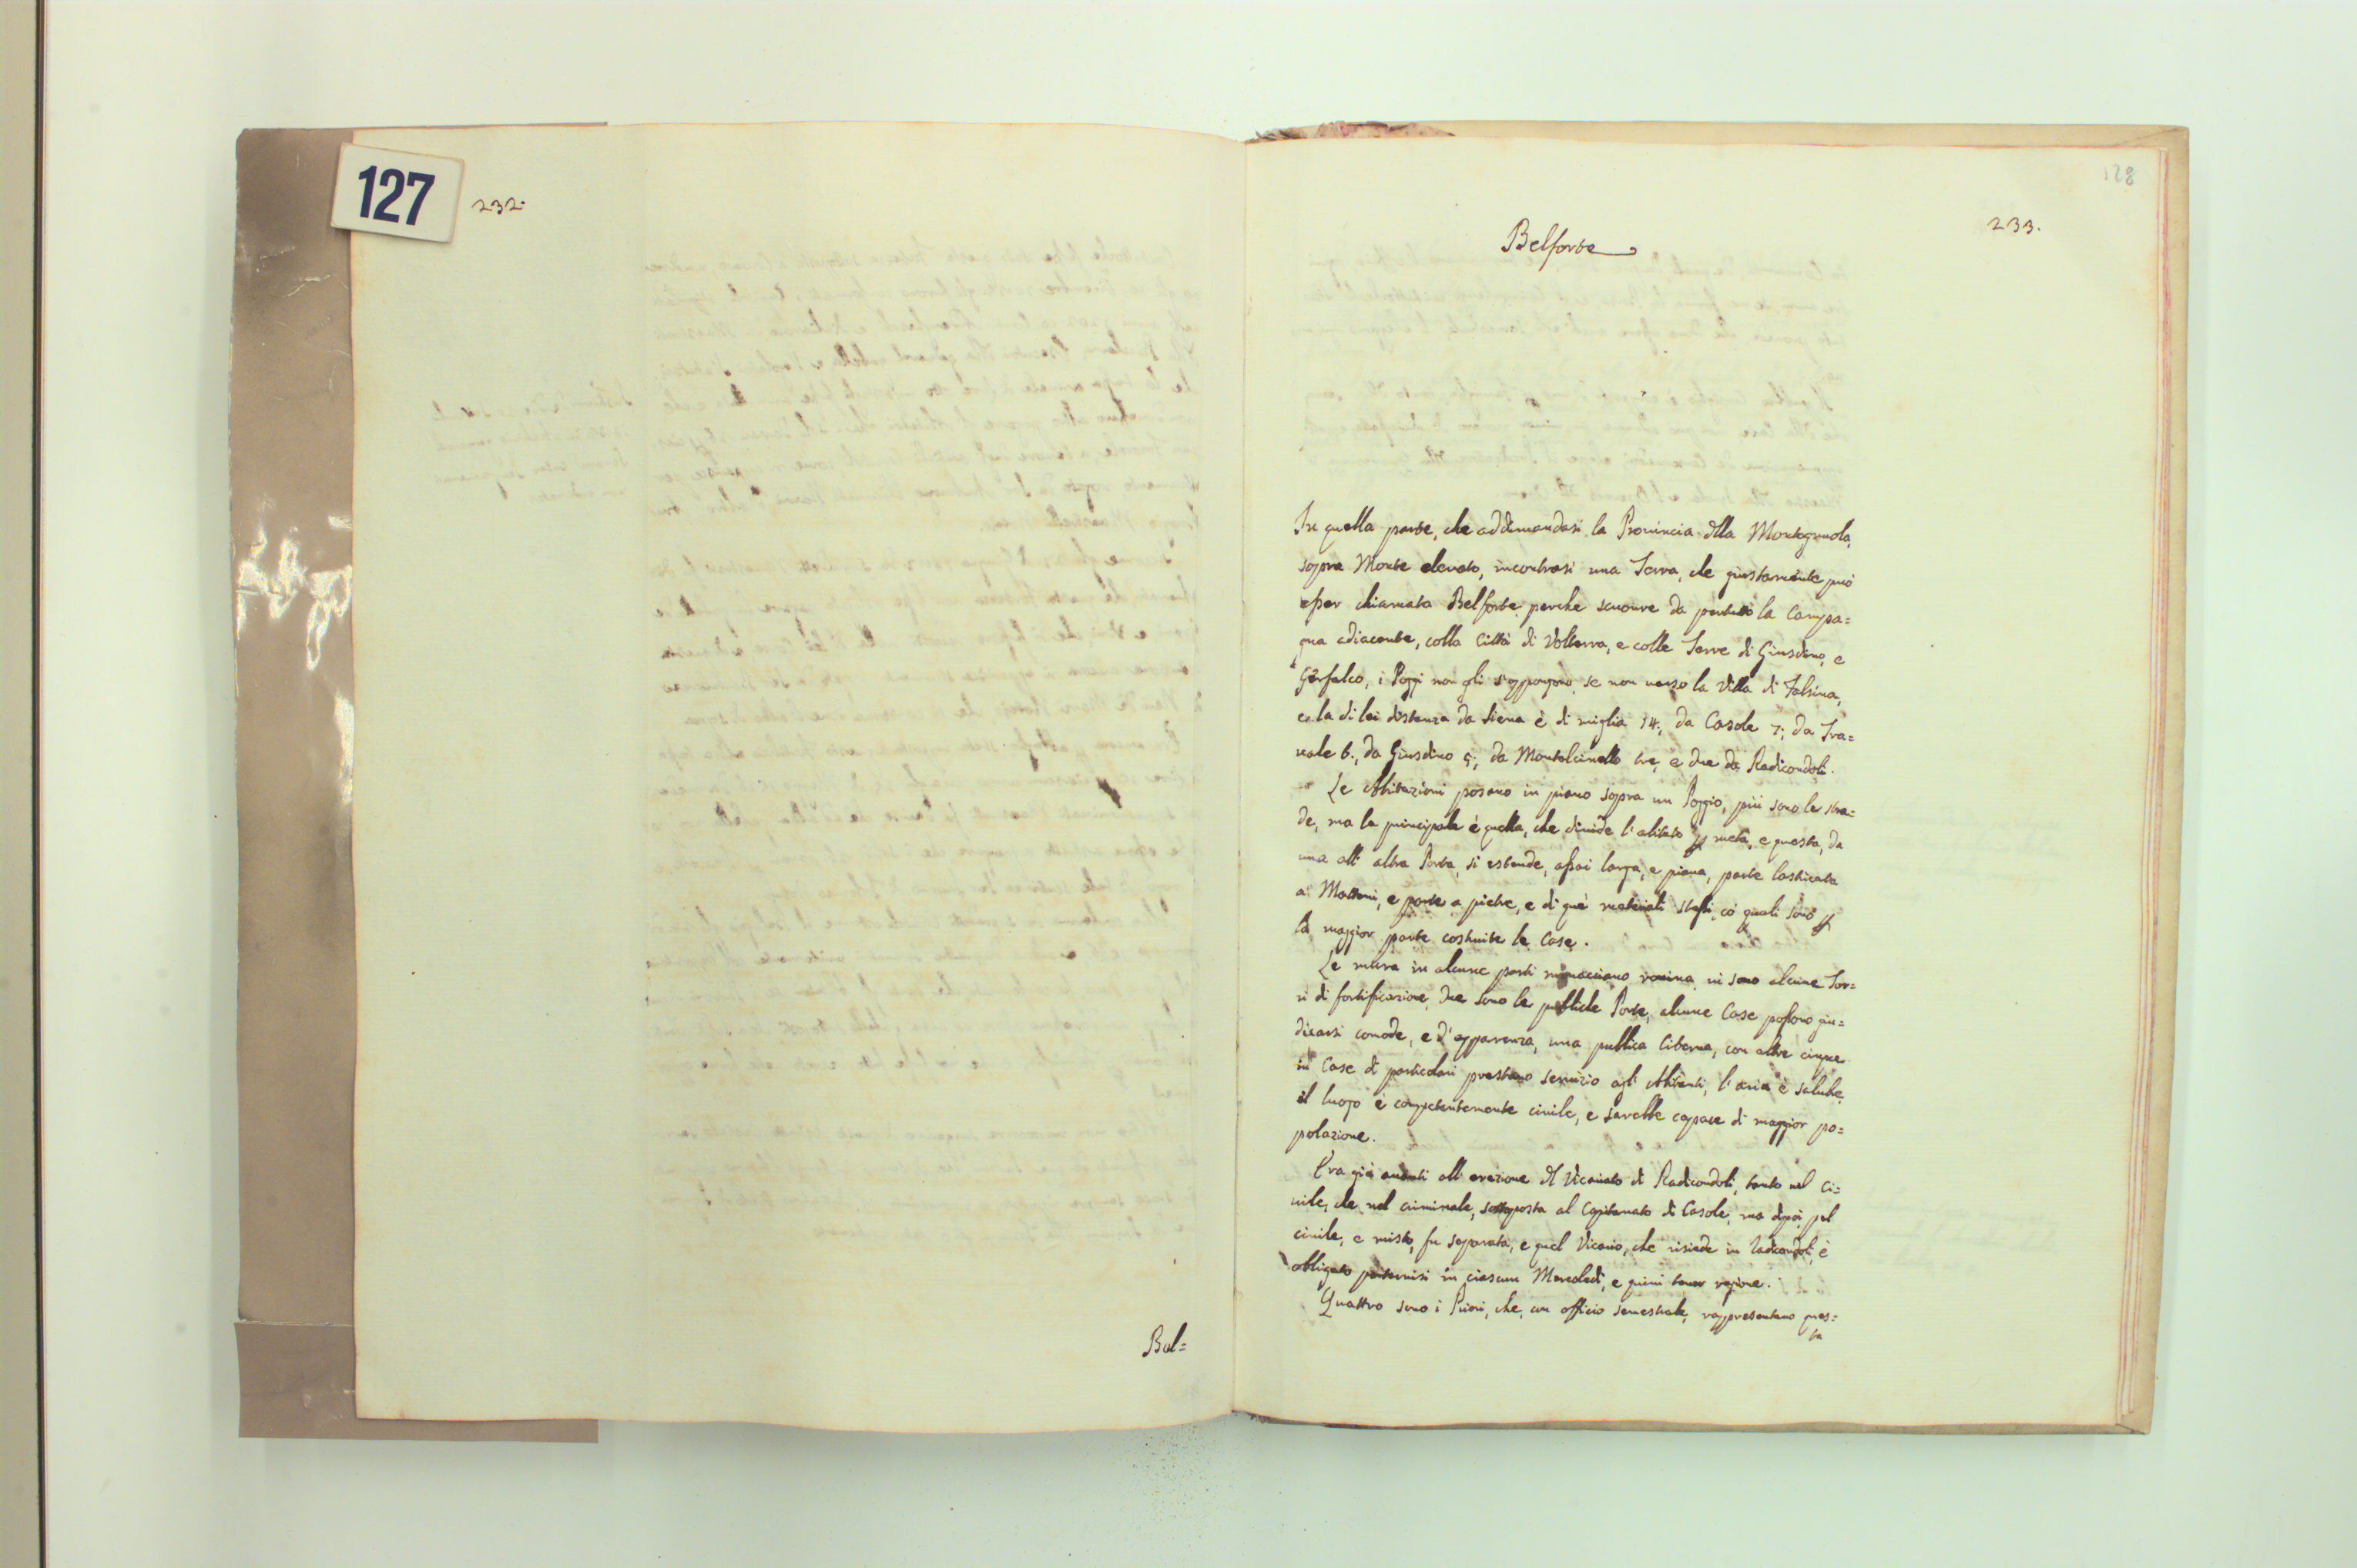 127
232.
Bel=
128
233.
Belforte
In quella parte, che addimandasi la Provincia della Montagnuola,
sopra Monte elevato, incontrasi una Terra, che giustamente può
esser chiamata Belforte, perche scuopre da pertutto la Campa=
gna adiacente, colla Città di Volterra, e colle Terre di Giusdino, e
Gerfalco, i Poggi non gli s'oppongono, se non verso la Villa di Falsina,
e la di lei distanza da Siena è di miglia 14., da Casole 7; da Tra=
vale 6., da Giusdino 5; da Montalcinello tre, e due da Radicondoli.
Le Abitazioni posano in piano sopra un Poggio, più sono le stra=
de, ma la principale è quella, che divide l'abitato p metà, e questa, da
una all altra Porta, si estende, assai larga, e piana, parte lastricata
a Mattoni, e parte a pietre, e di què materiali stessi, co quali sono p
la maggior parte costruite le Case.
Le mura in alcune parti minacciano rovina, vi sono alcune Tor=
ri di fortificazione, due sono le pubbliche Porte, alcune Case possono giu=
dicarsi comode, e d'apparenza, una pubblica Citerna, con altre cinque
in Case di particolari prestano servizio agl' Abitanti, l'aria è salubre,
il luogo è competentemente civile, e sarebbe capace di maggior po=
polazione.
Era già avanti all' erezione del Vicariato di Radicondoli, tanto nel ci=
vile, che nel criminale, sottoposta al Capitanato di Casole, ma dipoi pel
civile, e misto, fu separata, e quel Vicario, che risiede in Radicondoli, è
obbligato portarvisi in ciascun Mercoledì, e quivi tener ragione.
Quattro sono i Priori, che, con officio semestrale, rappresentano ques=
ta